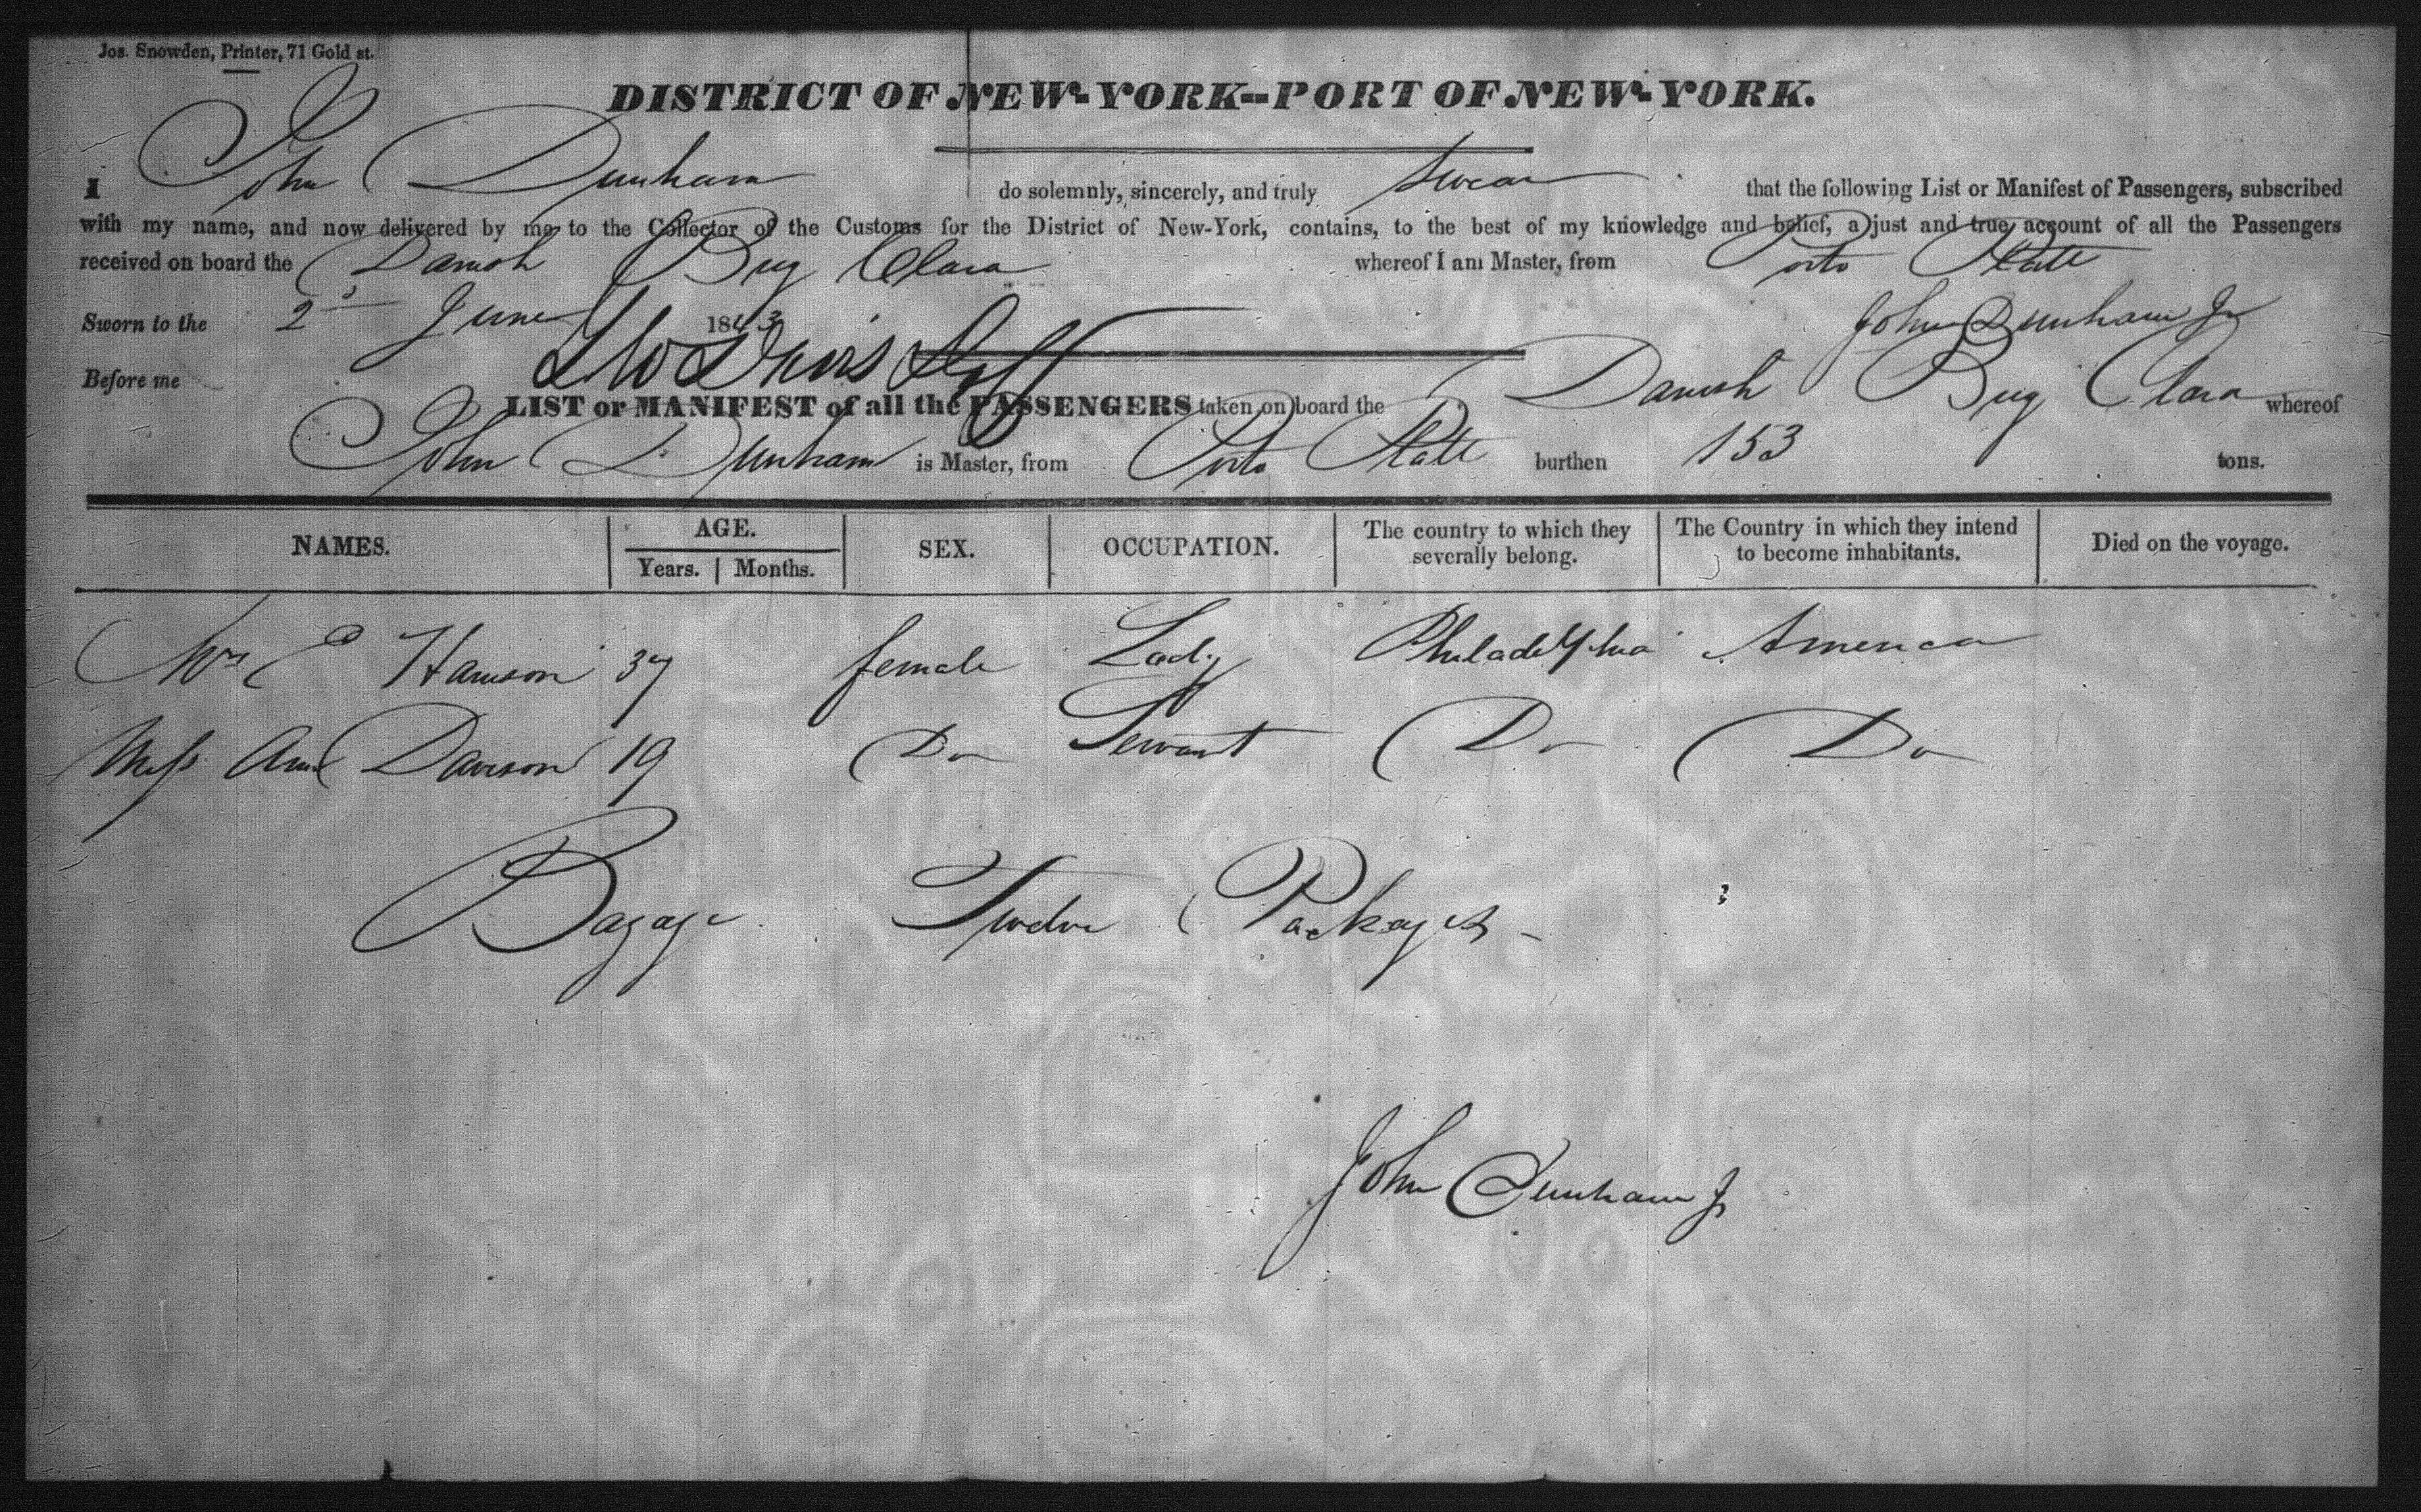 Jos. Snowden, Printer, 71 Gold st.
DISTRICT OF NEW-YORK--PORT OF NEW-YORK.
I John Dunham do solemnly, sincerely, and truly Swear that the following List or Manifest of Passengers, subscribed
with my name, and now delivered by me to the Collector of the Customs for the District of New-York, contains, to the best of my knowledge and belief, a just and true account of all the Passengers
received on board the Danish Brig Clara whereof I am Master, from Porto Platte
Sworn to the 2d June 1843 John Dunham Jr
Before me
LIST or MANIFEST of all the PASSENGERS taken on board the Danish Brig Clara whereof
John Dunham is Master, from Porto Platte burthen 153 tons.
NAMES. AGE. SEX. OCCUPATION. The country to which they severally belong. The Country in which they intend to become inhabitants. Died on the voyage.
Years. Months.
Mrs E Harrison 37 female Lady Philadelphia America
Miss Ann Davison 19 Do Servant Do Do
Bagage Twelve Packages -
John Dunham Jr